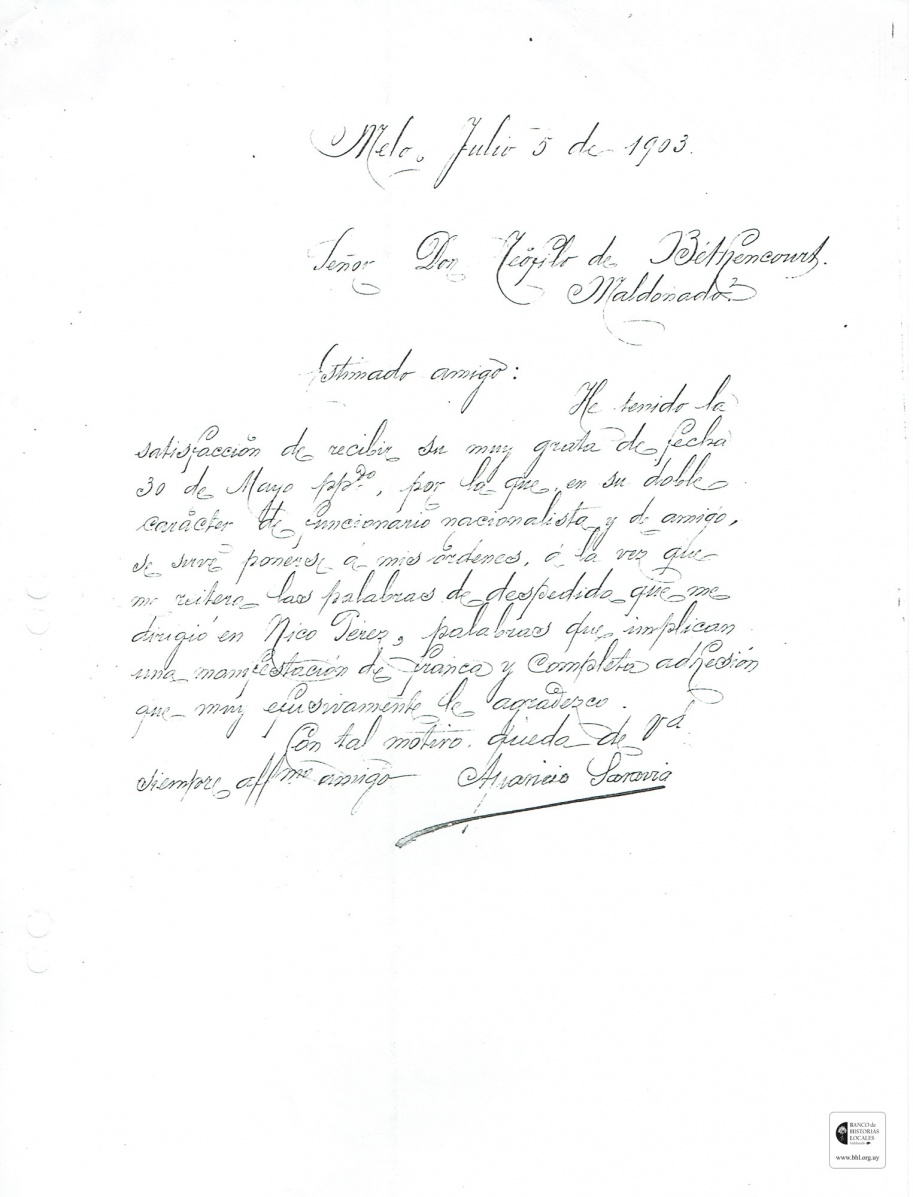 Melo, Julio 5 de 1903.
Señor Don Teófilo de Béthencourt.
Maldonado
Estimado amigo:
He tenido la
satisfacción de recibir su muy grata de fecha
30 de Mayo ppdo, por la que, en su doble
carácter de funcionario nacionalista y de amigo,
se sirve ponerse á mis órdenes, á la vez que
me reitera las palabras de despedida que me
dirigió en Nico Pérez, palabras que implican
una manifestación de franca y completa adhesión
que muy efusivamente le agradezco.
Con tal motivo queda de Vd
siempre affmo amigo Aparicio Saravia
BANCO de
HISTORIAS
LOCALES
www.bhl.org.uy